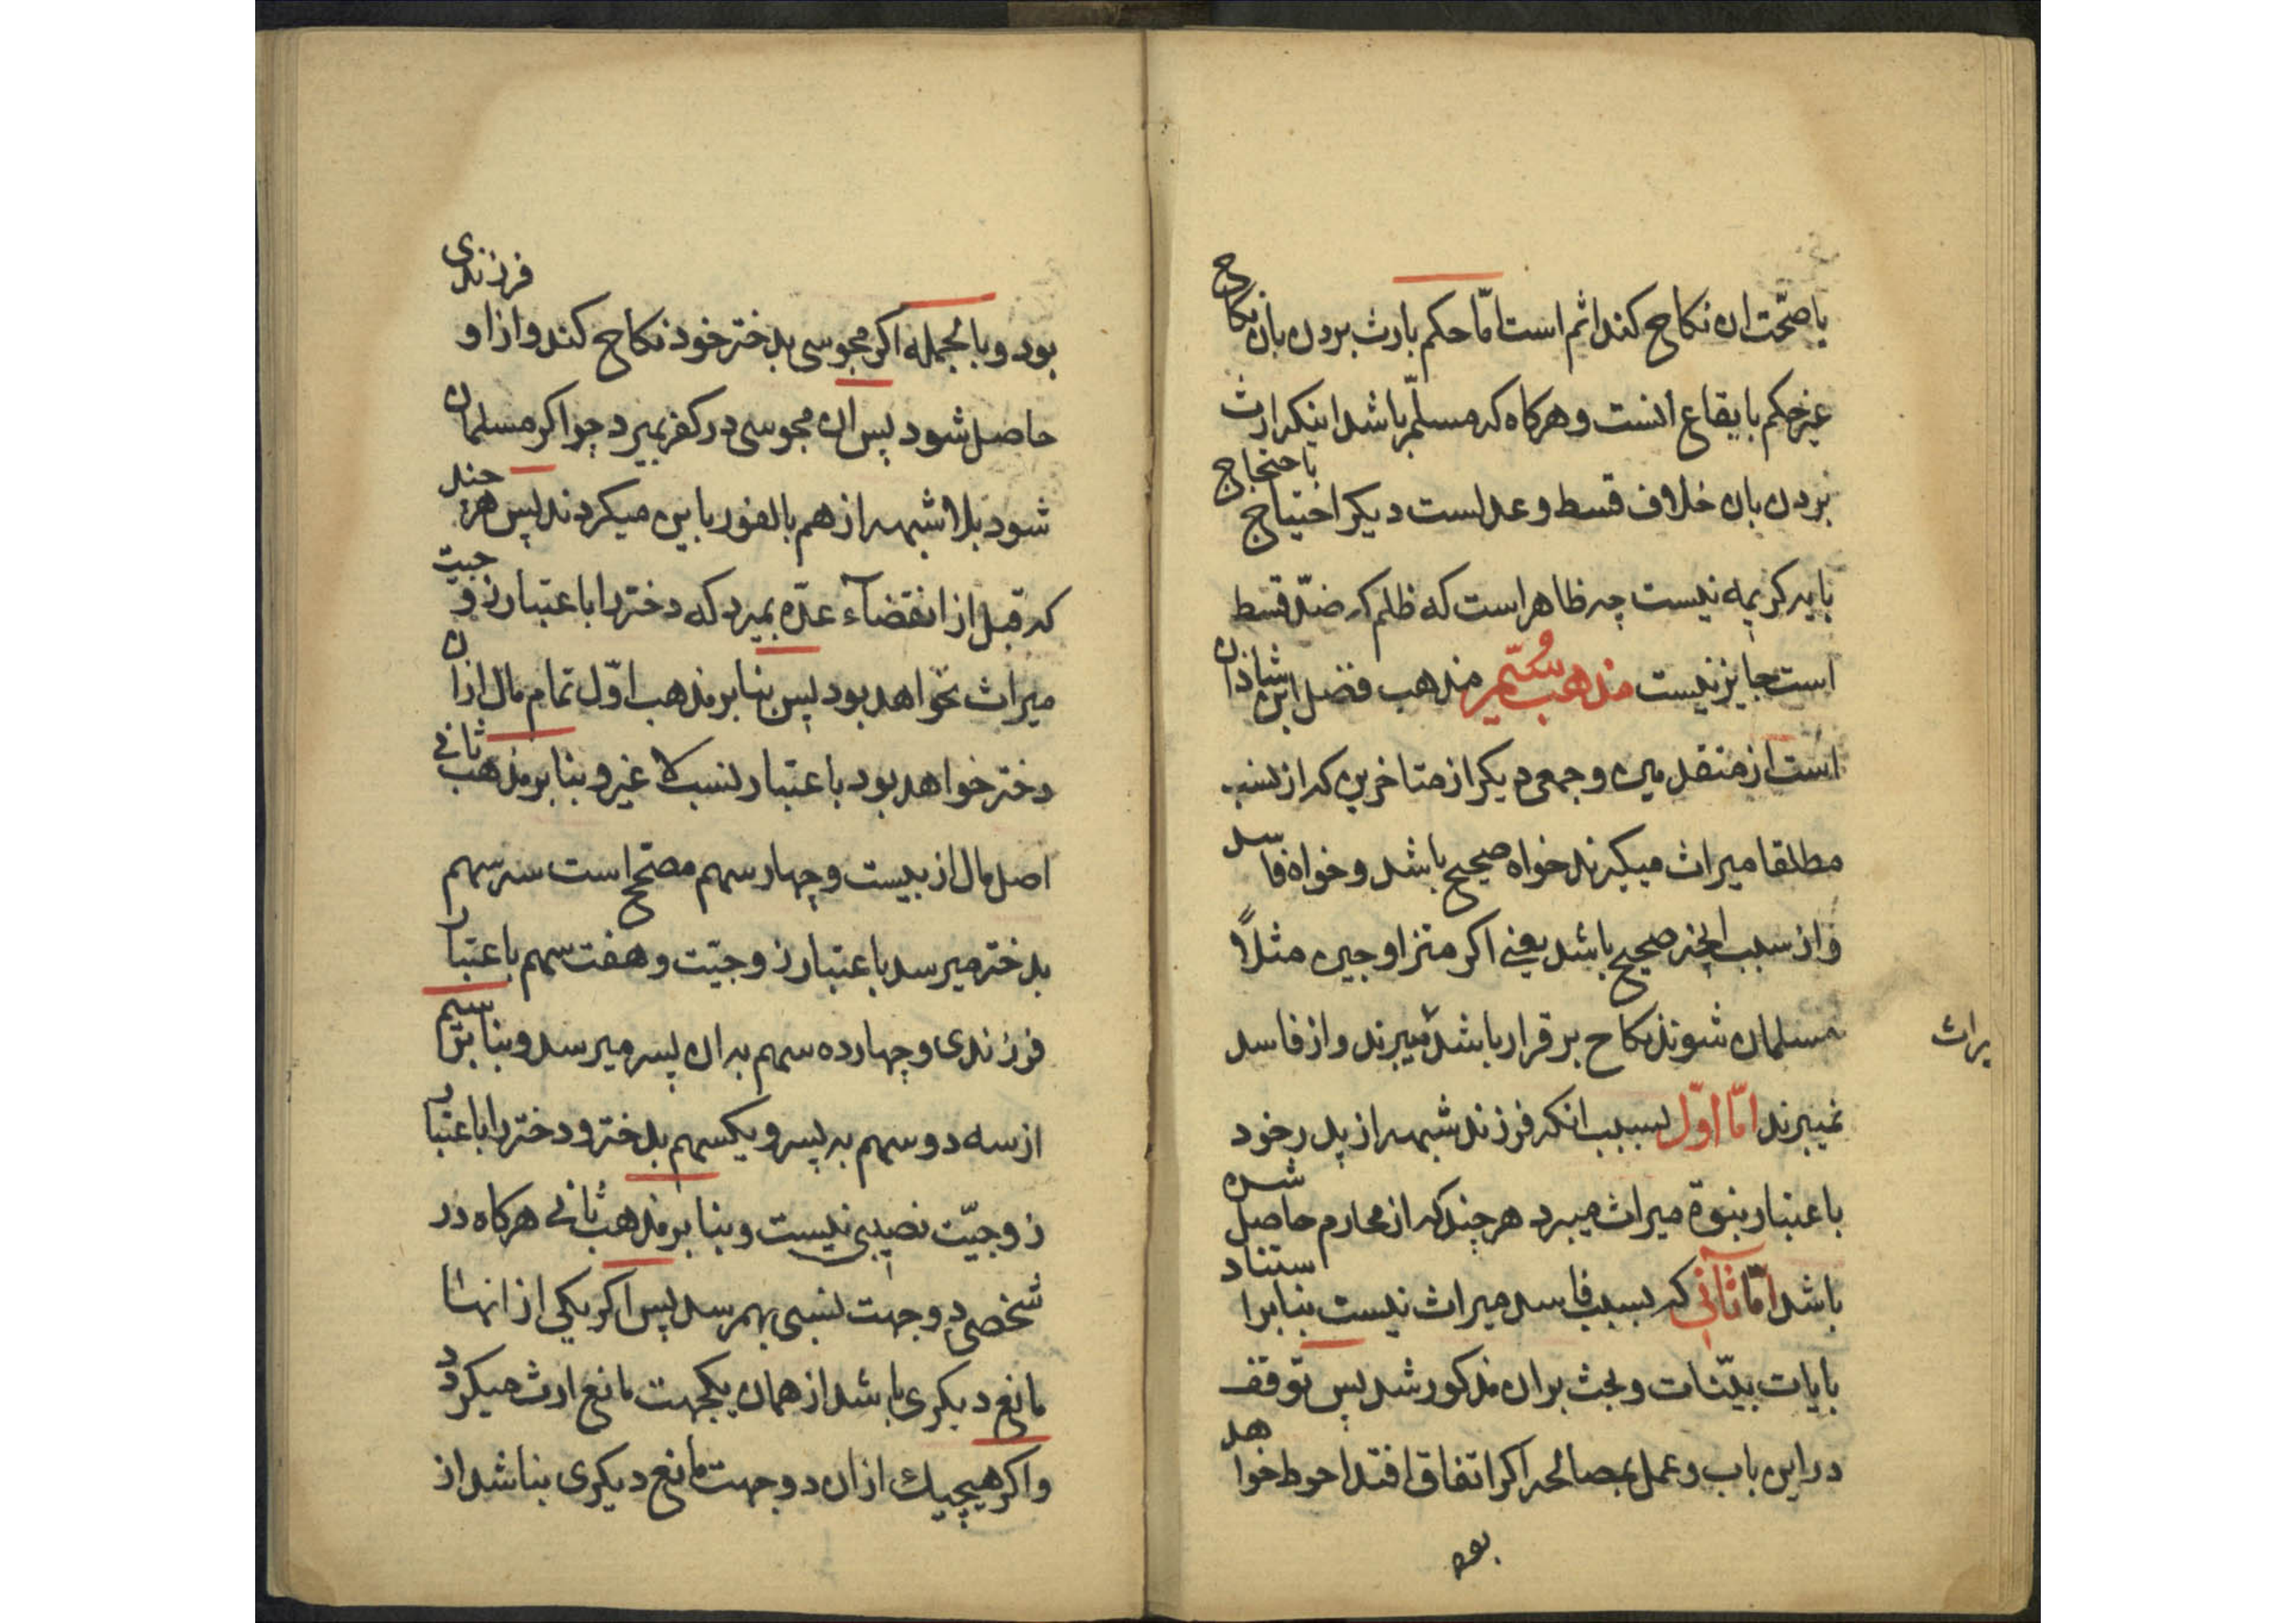 یا صحّت ان نکاح کند اثم است امّا حکم بارث بردن بان نکاح
غیر حکم بایقاع انست و هرکاه که مسلّم باشد اینکه ارث
بردن بان خلاف قسط و عدلست دیکر احتیاج باحتجاج
بایه کریمه نیست چه ظاهر است که ظلم که ضدّ قسط
است جایز نیست مذهب سیّم مذهب فضل ابن شاذان
است از متقدمین و جمعی دیکر از متاخرین که از نسب
مطلقا میراث میکیرند خواه صحیح باشد و خواه فاسد
و از سبب انچه صحیح باشد یعنی اکر متزاوجین مثلاً
مسلمان شوند نکاح برقرار باشد میبرند و از فاسد
یراث
نمیبرند امّا اوّل بسبب انکه فرزند شبهه از پدر خود
باعتبار بنوّة میراث میبرد هرچند که از محارم حاصل شده
باشد امّا ثانی که بسبب فاسد میراث نیست بنابر استناد
بایات بیّنات و بحث بران مذکور شد پس توقف
در این باب و عمل بمصالحه اکر اتفاق افتد احوط خواهد
بود
بود و بالجمله اکر مجوسی بدختر خود نکاح کند و از او فرزندی
حاصل شود پس ان مجوسی در کفر بمیرد چو اکر مسلمان
شود بلا شبهه از هم بالفور باین میکردند پس هرچند
که قبل از انقضآء عدّه بمیرد که دختر را باعتبار زوجیت
میراث نخواهد بود پس بنابر مذهب اوّل تمام مال از ان
دختر خواهد بود باعتبار نسب لا غیر و بنابر مذهب ثانی
اصل مال از بیست و چهار سهم مصحّح است سه سهم
بدختر میرسد باعتبار زوجیّت و هفت سهم باعتبار
فرزندی و چهارده سهم به ان پسر میرسد و بنابر سیم
از سه دو سهم به پسر و یکسهم بدختر و دختر را باعتبار
زوجیّت نصیبی نیست و بنابر مذهب ثانی هرکاه در
شخصی دو جهت نسبی بهم رسد پس اکر یکی از انها
مانع دیکری باشد از همان یکجهت مانع ارث میکیرد
و اکر هیچیك از ان دو جهت مانع دیکری بناشد از